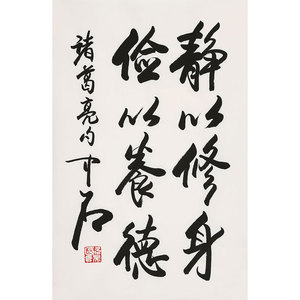 静以修身
俭以养德
诸葛亮句 中石